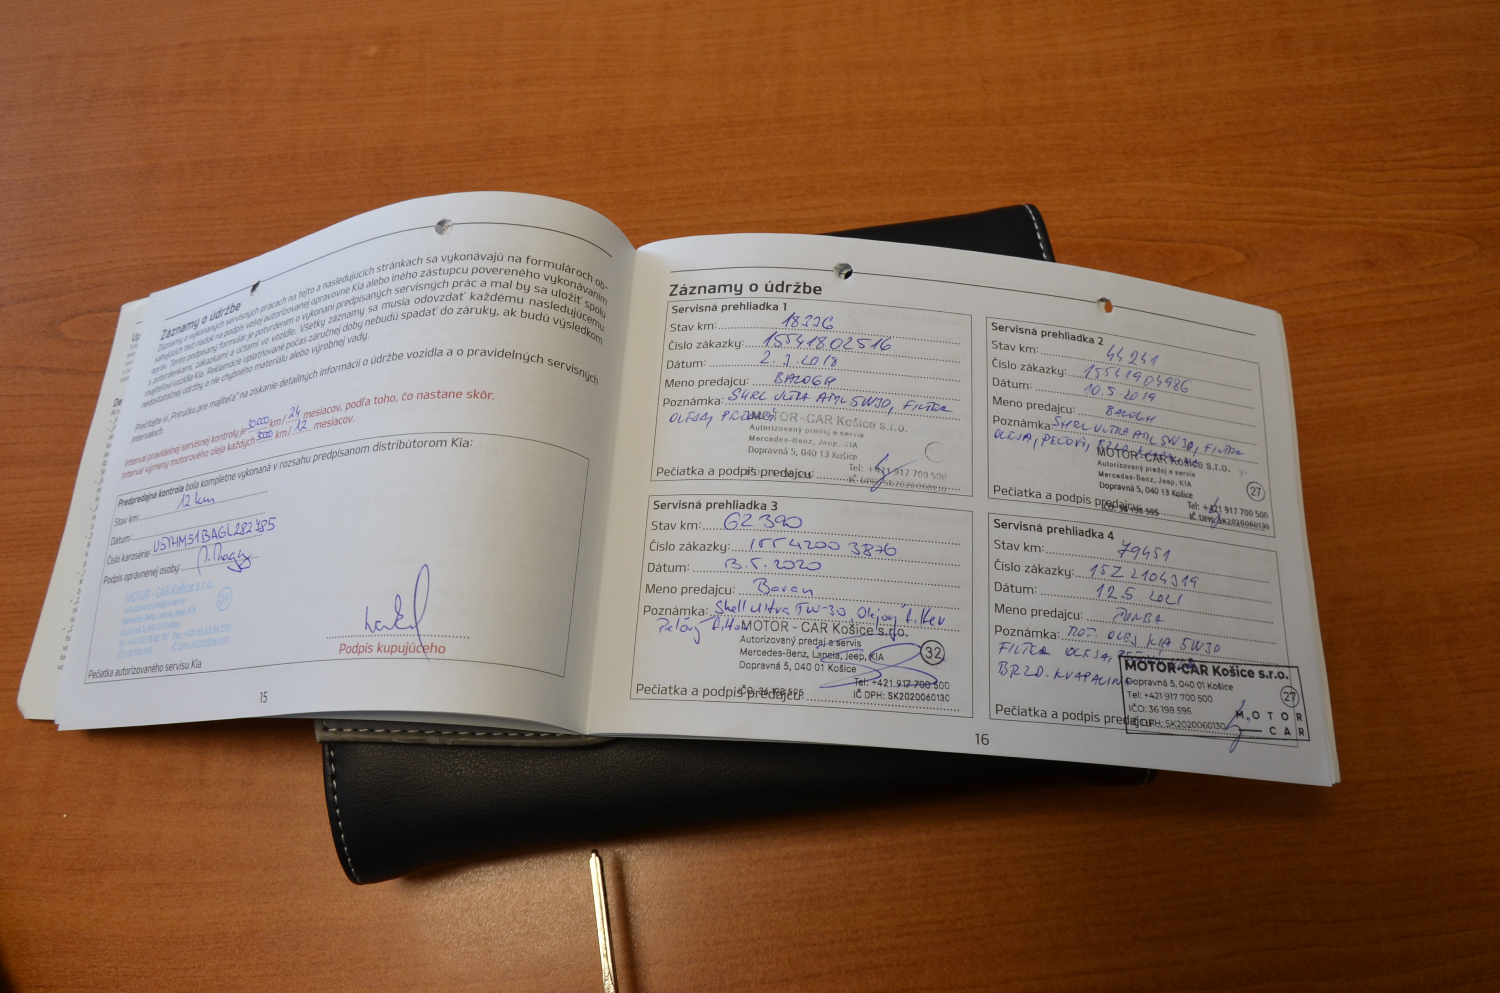 Záznamy o údržbe
Záznamy o vykonaných servisných prácach na tejto a nasledujúcich stránkach sa vykonávajú na formulároch ob-
sahujúcich tiež riadok na podpis vašej autorizovanej opravovne Kia alebo iného zástupcu povereného vykonávaním
opráv. Tento podpísaný formulár je potvrdením o vykonaní predpísaných servisných prác a mal by sa uložiť spolu
s potvrdenkami, zákazkami a účtami vo vozidle. Všetky záznamy sa musia odovzdať každému nasledujúcemu
majiteľovi vozidla Kia. Reklamácie uplatňované počas záručnej doby nebudú spadať do záruky, ak budú výsledkom
nedostatočnej údržby a nie chybného materiálu alebo výrobnej vady.
Prečítajte si „Príručku pre majiteľa“ na získanie detailných informácií o údržbe vozidla a o pravidelných servisných
intervaloch.
Interval pravidelnej servisnej kontroly je 30000 km/ 24 mesiacov, podľa toho, čo nastane skôr.
Interval výmeny motorového oleja každých km/ 12 mesiacov.
Predpredajná kontrola bola kompletne vykonaná v rozsahu predpísanom distribútorom Kia:
Stav km 12 km
Dátum
Číslo karosérie: U5YHM51BAGL282485
Podpis oprávnenej osoby:
MOTOR - CAR Košice s.r.o.
Autorizovaný predaj a servis
Mercedes-Benz, Lancia, Jeep, KIA
Dopravná 5, 040 01 Košice
Pečiatka autorizovaného servisu Kia
Podpis kupujúceho
15
Záznamy o údržbe
Servisná prehliadka 1
Stav km: 18336
Číslo zákazky: 15541802516
Dátum: 2.3.2018
Meno predajcu: BALOGH
Poznámka: SHELL ULTRA AML 5W30, FILTER
OLEJA, PEĽOVÝ
MOTOR - CAR Košice s.r.o.
Autorizovaný predaj a servis
Mercedes-Benz, Jeep, KIA
Dopravná 5, 040 13 Košice
Tel: +421 917 700 500
IČ DPH: SK2020060130
Pečiatka a podpis predajcu:
Servisná prehliadka 2
Stav km: 44241
Číslo zákazky: 15541904986
Dátum: 10.5 2019
Meno predajcu: BALOGH
Poznámka: SHELL ULTRA AML 5W30, FILTER
OLEJA, PEĽOVÝ,
MOTOR - CAR Košice s.r.o.
Autorizovaný predaj a servis
Mercedes-Benz, Jeep, KIA
Dopravná 5, 040 13 Košice
27
Tel: +421 917 700 500
IČO: 36 198 595 IČ DPH: SK2020060130
Pečiatka a podpis predajcu:
Servisná prehliadka 3
Stav km: 62390
Číslo zákazky: 15542003876
Dátum: 13.5.2020
Meno predajcu: Baran
Poznámka: Shell Ultra 5W-30 Olejový filter
Peľový filter
MOTOR - CAR Košice s.r.o.
Autorizovaný predaj a servis
Mercedes-Benz, Lancia, Jeep, KIA
Dopravná 5, 040 01 Košice
32
Tel: +421 917 700 500
IČO: 36 198 595 IČ DPH: SK2020060130
Pečiatka a podpis predajcu:
Servisná prehliadka 4
Stav km: 79451
Číslo zákazky: 15Z2104319
Dátum: 12.5 2021
Meno predajcu: ČURBA
Poznámka: MOT. OLEJ KIA 5W30
FILTER OLEJA,
BRZD. KVAPALINA
MOTOR-CAR Košice s.r.o.
Dopravná 5, 040 01 Košice
Tel: +421 917 700 500
27
IČO: 36 198 595
IČ DPH: SK2020060130
MOTOR
CAR
Pečiatka a podpis predajcu:
16